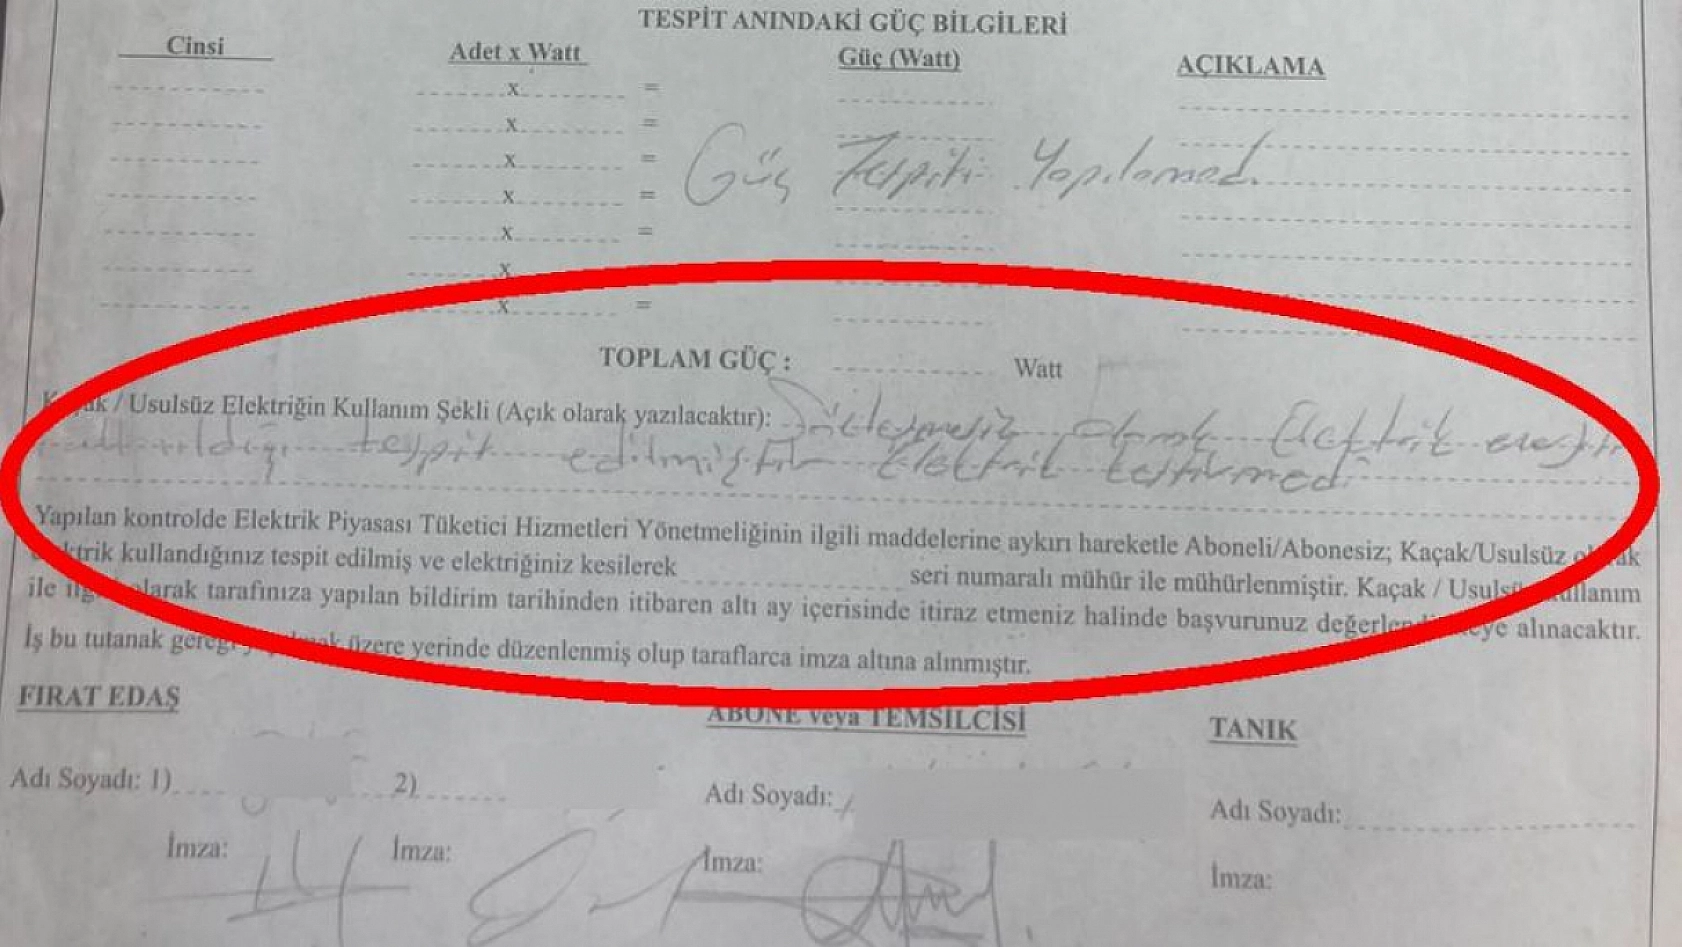 TESPİT ANINDAKİ GÜÇ BİLGİLERİ
Cinsi Adet x Watt Güç (Watt) AÇIKLAMA
x =
x =
x =
x =
x =
x
x =
Güç Tespiti Yapılamadı
TOPLAM GÜÇ : Watt
Kaçak / Usulsüz Elektriğin Kullanım Şekli (Açık olarak yazılacaktır): Sözleşmesiz olarak Elektrik enerjisi
kullanıldığı tespit edilmiştir Elektrik kestirmedi
Yapılan kontrolde Elektrik Piyasası Tüketici Hizmetleri Yönetmeliğinin ilgili maddelerine aykırı hareketle Aboneli/Abonesiz; Kaçak/Usulsüz olarak
elektrik kullandığınız tespit edilmiş ve elektriğiniz kesilerek seri numaralı mühür ile mühürlenmiştir. Kaçak / Usulsüz kullanım
ile ilgili olarak tarafınıza yapılan bildirim tarihinden itibaren altı ay içerisinde itiraz etmeniz halinde başvurunuz değerlendirmeye alınacaktır.
İş bu tutanak gereği yapılmak üzere yerinde düzenlenmiş olup taraflarca imza altına alınmıştır.
FIRAT EDAŞ ABONE veya TEMSİLCİSİ TANIK
Adı Soyadı: 1) 2) Adı Soyadı: Adı Soyadı:
İmza: İmza: İmza: İmza: